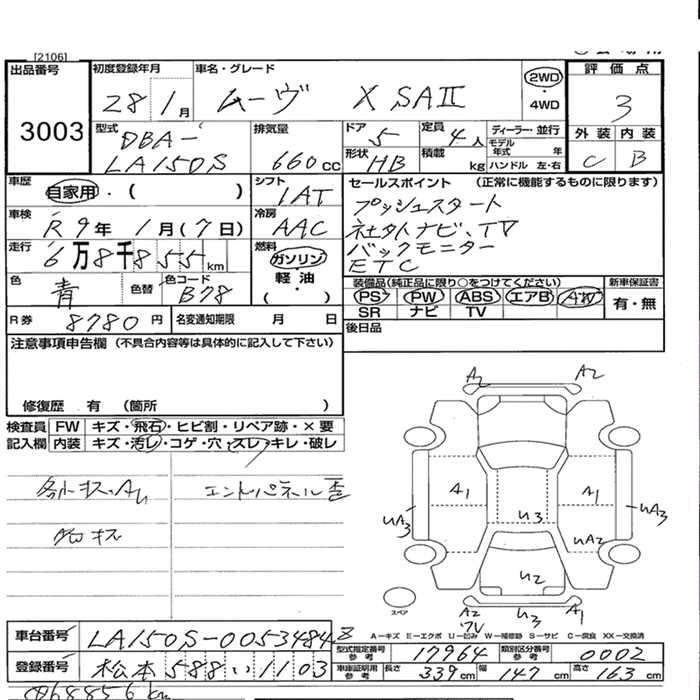 [2106]
出品番号 3003
初度登録年月 28年1月
車名・グレード ムーヴ X SAⅡ
2WD・4WD
評価点 3
外装 内装
C B
型式 DBA-LA150S
排気量 660cc
ドア 5
形状 HB
定員 4人
積載 kg
ディーラー・並行
モデル年式 年
ハンドル 左・右
車歴 自家用・( )
シフト 1AT
車検 R9年1月(7日)
冷房 AAC
走行 6万8千855km
燃料 ガソリン・軽油 ( )
色 青
色替
色コード B78
R券 8780円
名変通知期限 月 日
セールスポイント (正常に機能するものに限ります)
プッシュスタート
社外ナビ、TV
バックモニター
ETC
装備品(純正品に限り○をつけてください)
PS PW ABS エアB AW
SR ナビ TV
新車保証書
有・無
後日品
注意事項申告欄 (不具合内容等は具体的に記入して下さい)
修復歴 有 (箇所 )
検査員記入欄
FW キズ・飛石・ヒビ割・リペア跡・×要
内装 キズ・汚レ・コゲ・穴・スレ・キレ・破レ
エンドパネル歪
A2 A2
A1 A1
UA3 U3 UA3
UA2
U2
A2 U3 A1
スペア
A-キズ E-エクボ U-凹み W-補修跡 S-サビ C-腐食 XX-交換済
車台番号 LA150S-0053484
登録番号 松本 588 い 1103
型式指定番号参考 17964
類別区分番号参考 0002
車庫証明用参考 長さ 339cm 幅 147cm 高さ 163cm
068856km